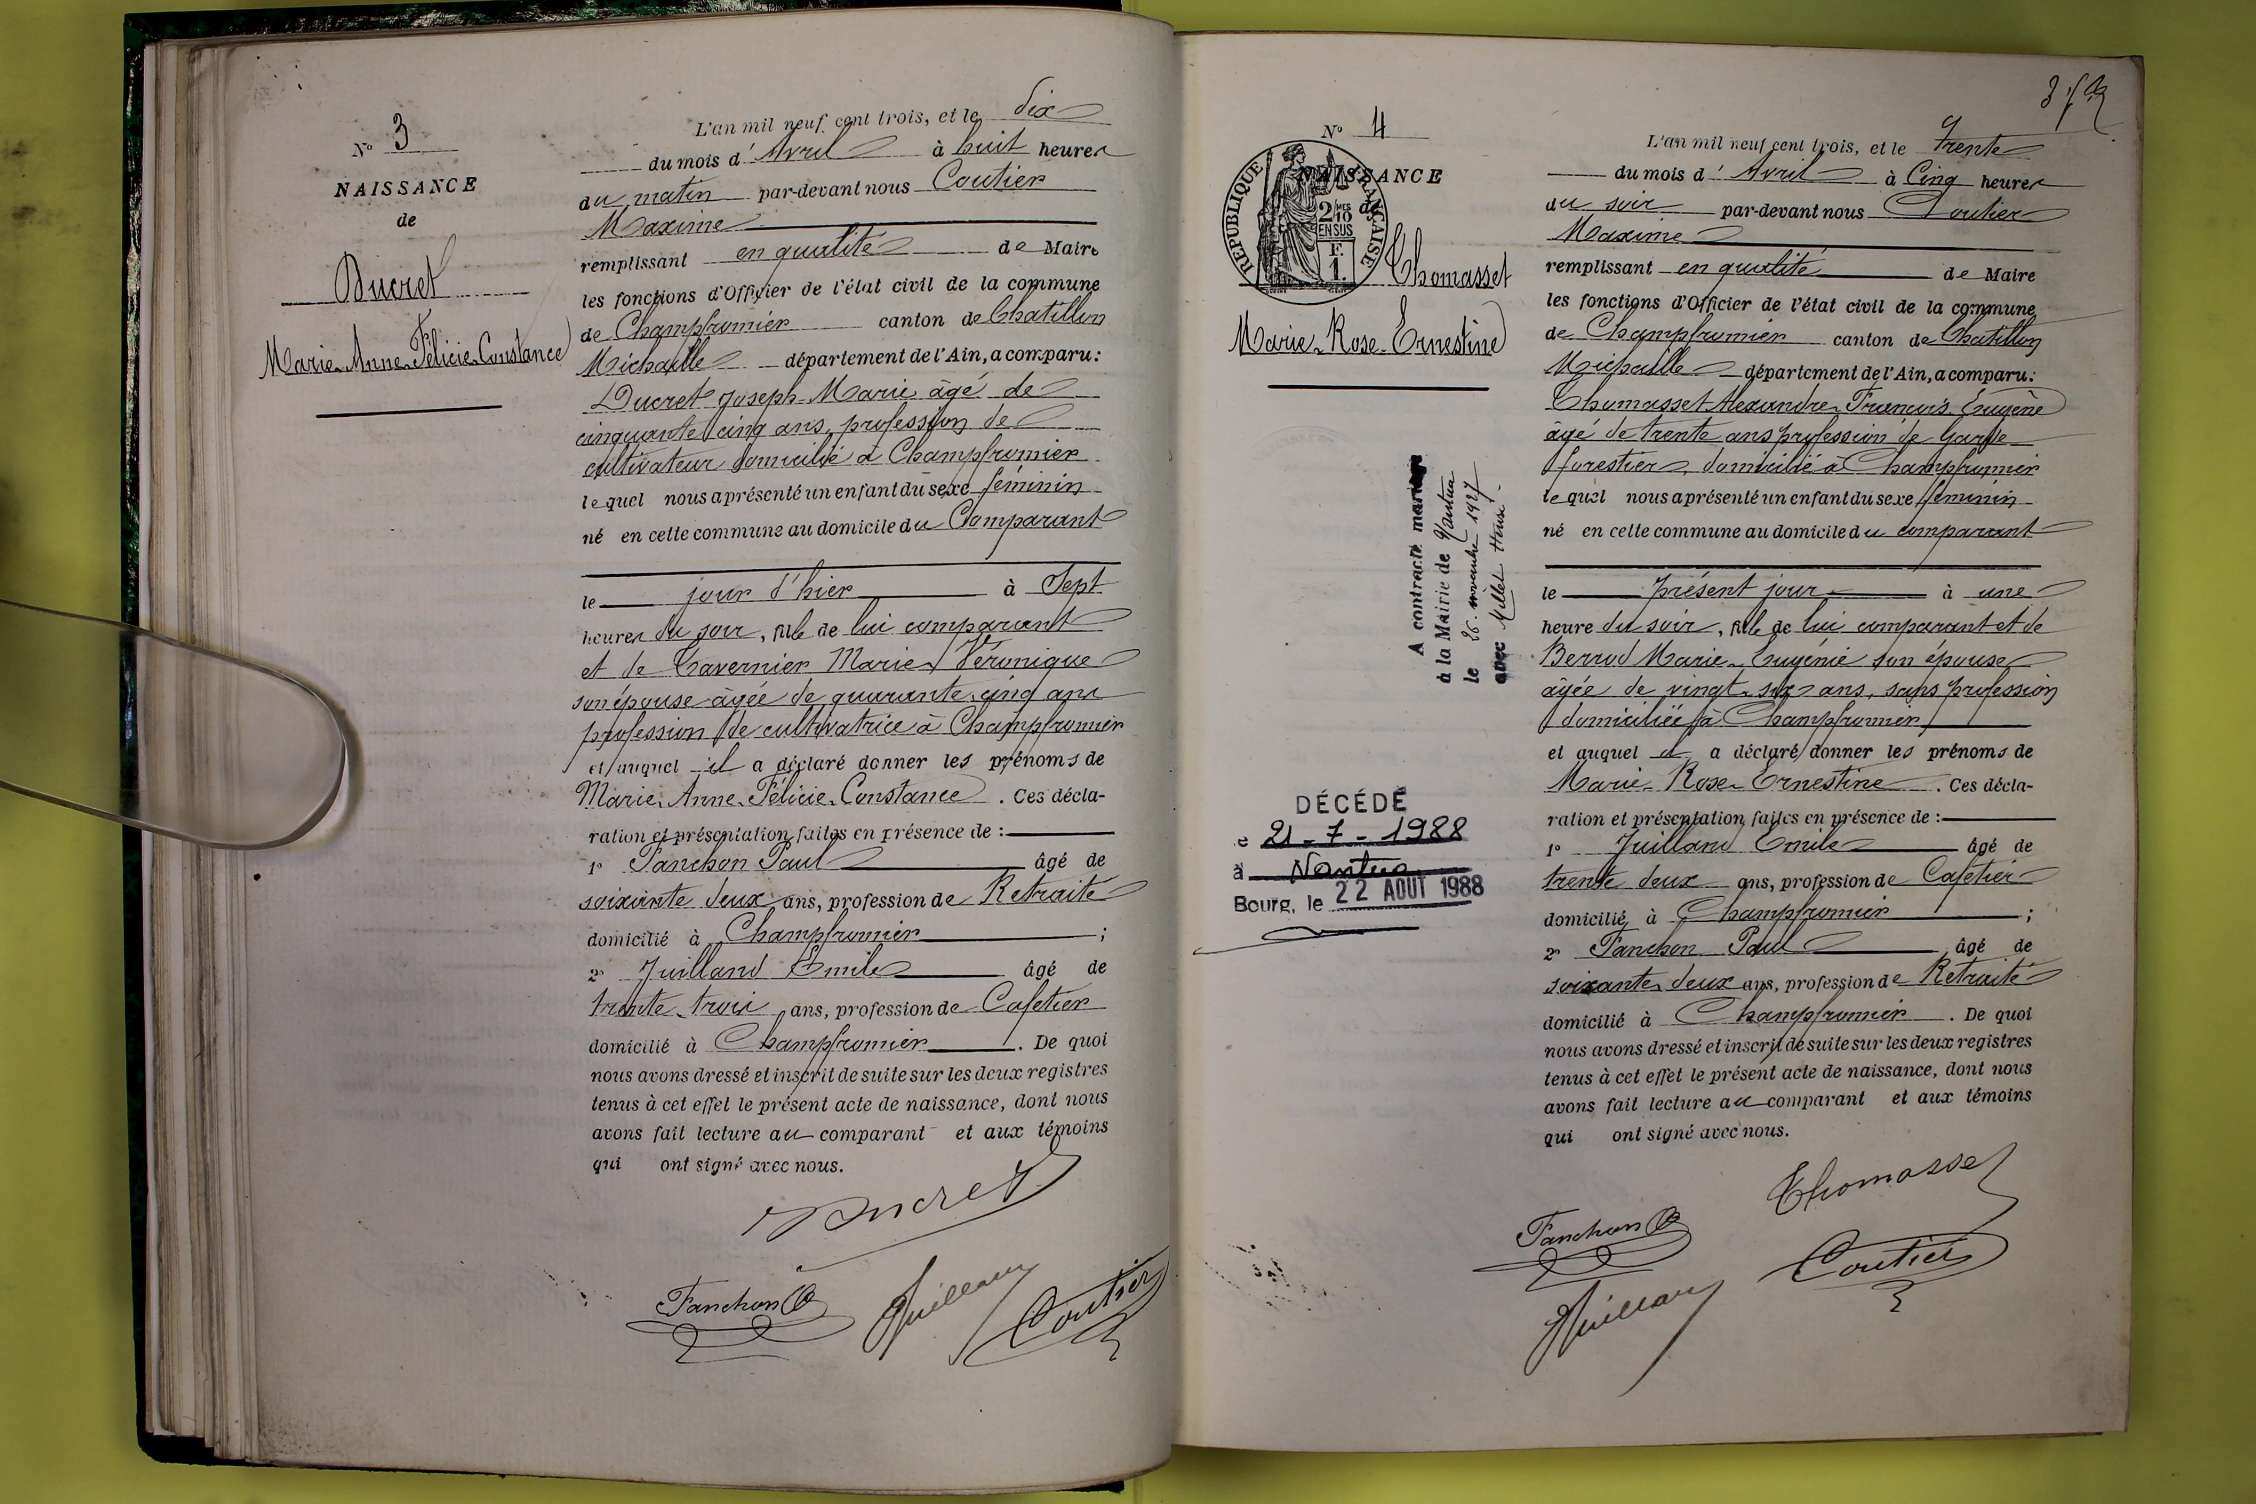 N° 3
NAISSANCE
de
Ducret
Marie-Anne-Félicie-Constance
L'an mil neuf cent trois, et le dix
du mois d'Avril à huit heures
du matin par-devant nous Coutier
Maxime
remplissant en qualité de Maire
les fonctions d'Officier de l'état civil de la commune
de Champfromier canton de Chatillon
Michaille département de l'Ain, a comparu:
Ducret Joseph-Marie âgé de
cinquante cinq ans, profession de
cultivateur domicilié à Champfromier
lequel nous a présenté un enfant du sexe féminin
né en cette commune au domicile du Comparant
le jour d'hier à Sept
heures du soir, fille de lui comparant
et de Tavernier Marie Véronique
son épouse âgée de quarante-cinq ans
profession de cultivatrice à Champfromier
et auquel il a déclaré donner les prénoms de
Marie-Anne-Félicie-Constance. Ces décla-
ration et présentation faites en présence de :
1° Fanchon Paul âgé de
soixante deux ans, profession de Retraité
domicilié à Champfromier ;
2° Juilland Emile âgé de
trente-trois ans, profession de Cafetier
domicilié à Champfromier. De quoi
nous avons dressé et inscrit de suite sur les deux registres
tenus à cet effet le présent acte de naissance, dont nous
avons fait lecture au comparant et aux témoins
qui ont signé avec nous.
Ducret
Fanchon Juilland Coutier
N° 4
NAISSANCE
de
RÉPUBLIQUE FRANÇAISE
2/10 MES
EN SUS
F.
1.
Thomasset
Marie-Rose-Ernestine
A contracté mariage
à la Mairie de Nantua
le 26 novembre 1927
avec Millet Henri.
DÉCÉDÉ
e 21-7-1988
à Nantua
Bourg, le 22 AOUT 1988
L'an mil neuf cent trois, et le trente
du mois d'Avril à Cinq heures
du soir par-devant nous Coutier
Maxime
remplissant en qualité de Maire
les fonctions d'Officier de l'état civil de la commune
de Champfromier canton de Chatillon
Michaille département de l'Ain, a comparu:
Thomasset Alexandre-François-Eugène
âgé de trente ans profession de Garde
forestier, domicilié à Champfromier
lequel nous a présenté un enfant du sexe féminin
né en cette commune au domicile du comparant
le présent jour à une
heure du soir, fille de lui comparant et de
Berrod Marie-Eugénie son épouse
âgée de vingt-six ans, sans profession
domiciliée à Champfromier
et auquel il a déclaré donner les prénoms de
Marie-Rose-Ernestine. Ces décla-
ration et présentation faites en présence de :
1° Juilland Emile âgé de
trente deux ans, profession de Cafetier
domicilié à Champfromier ;
2° Fanchon Paul âgé de
soixante-deux ans, profession de Retraité
domicilié à Champfromier. De quoi
nous avons dressé et inscrit de suite sur les deux registres
tenus à cet effet le présent acte de naissance, dont nous
avons fait lecture au comparant et aux témoins
qui ont signé avec nous.
Thomasset
Fanchon Coutier
Juilland